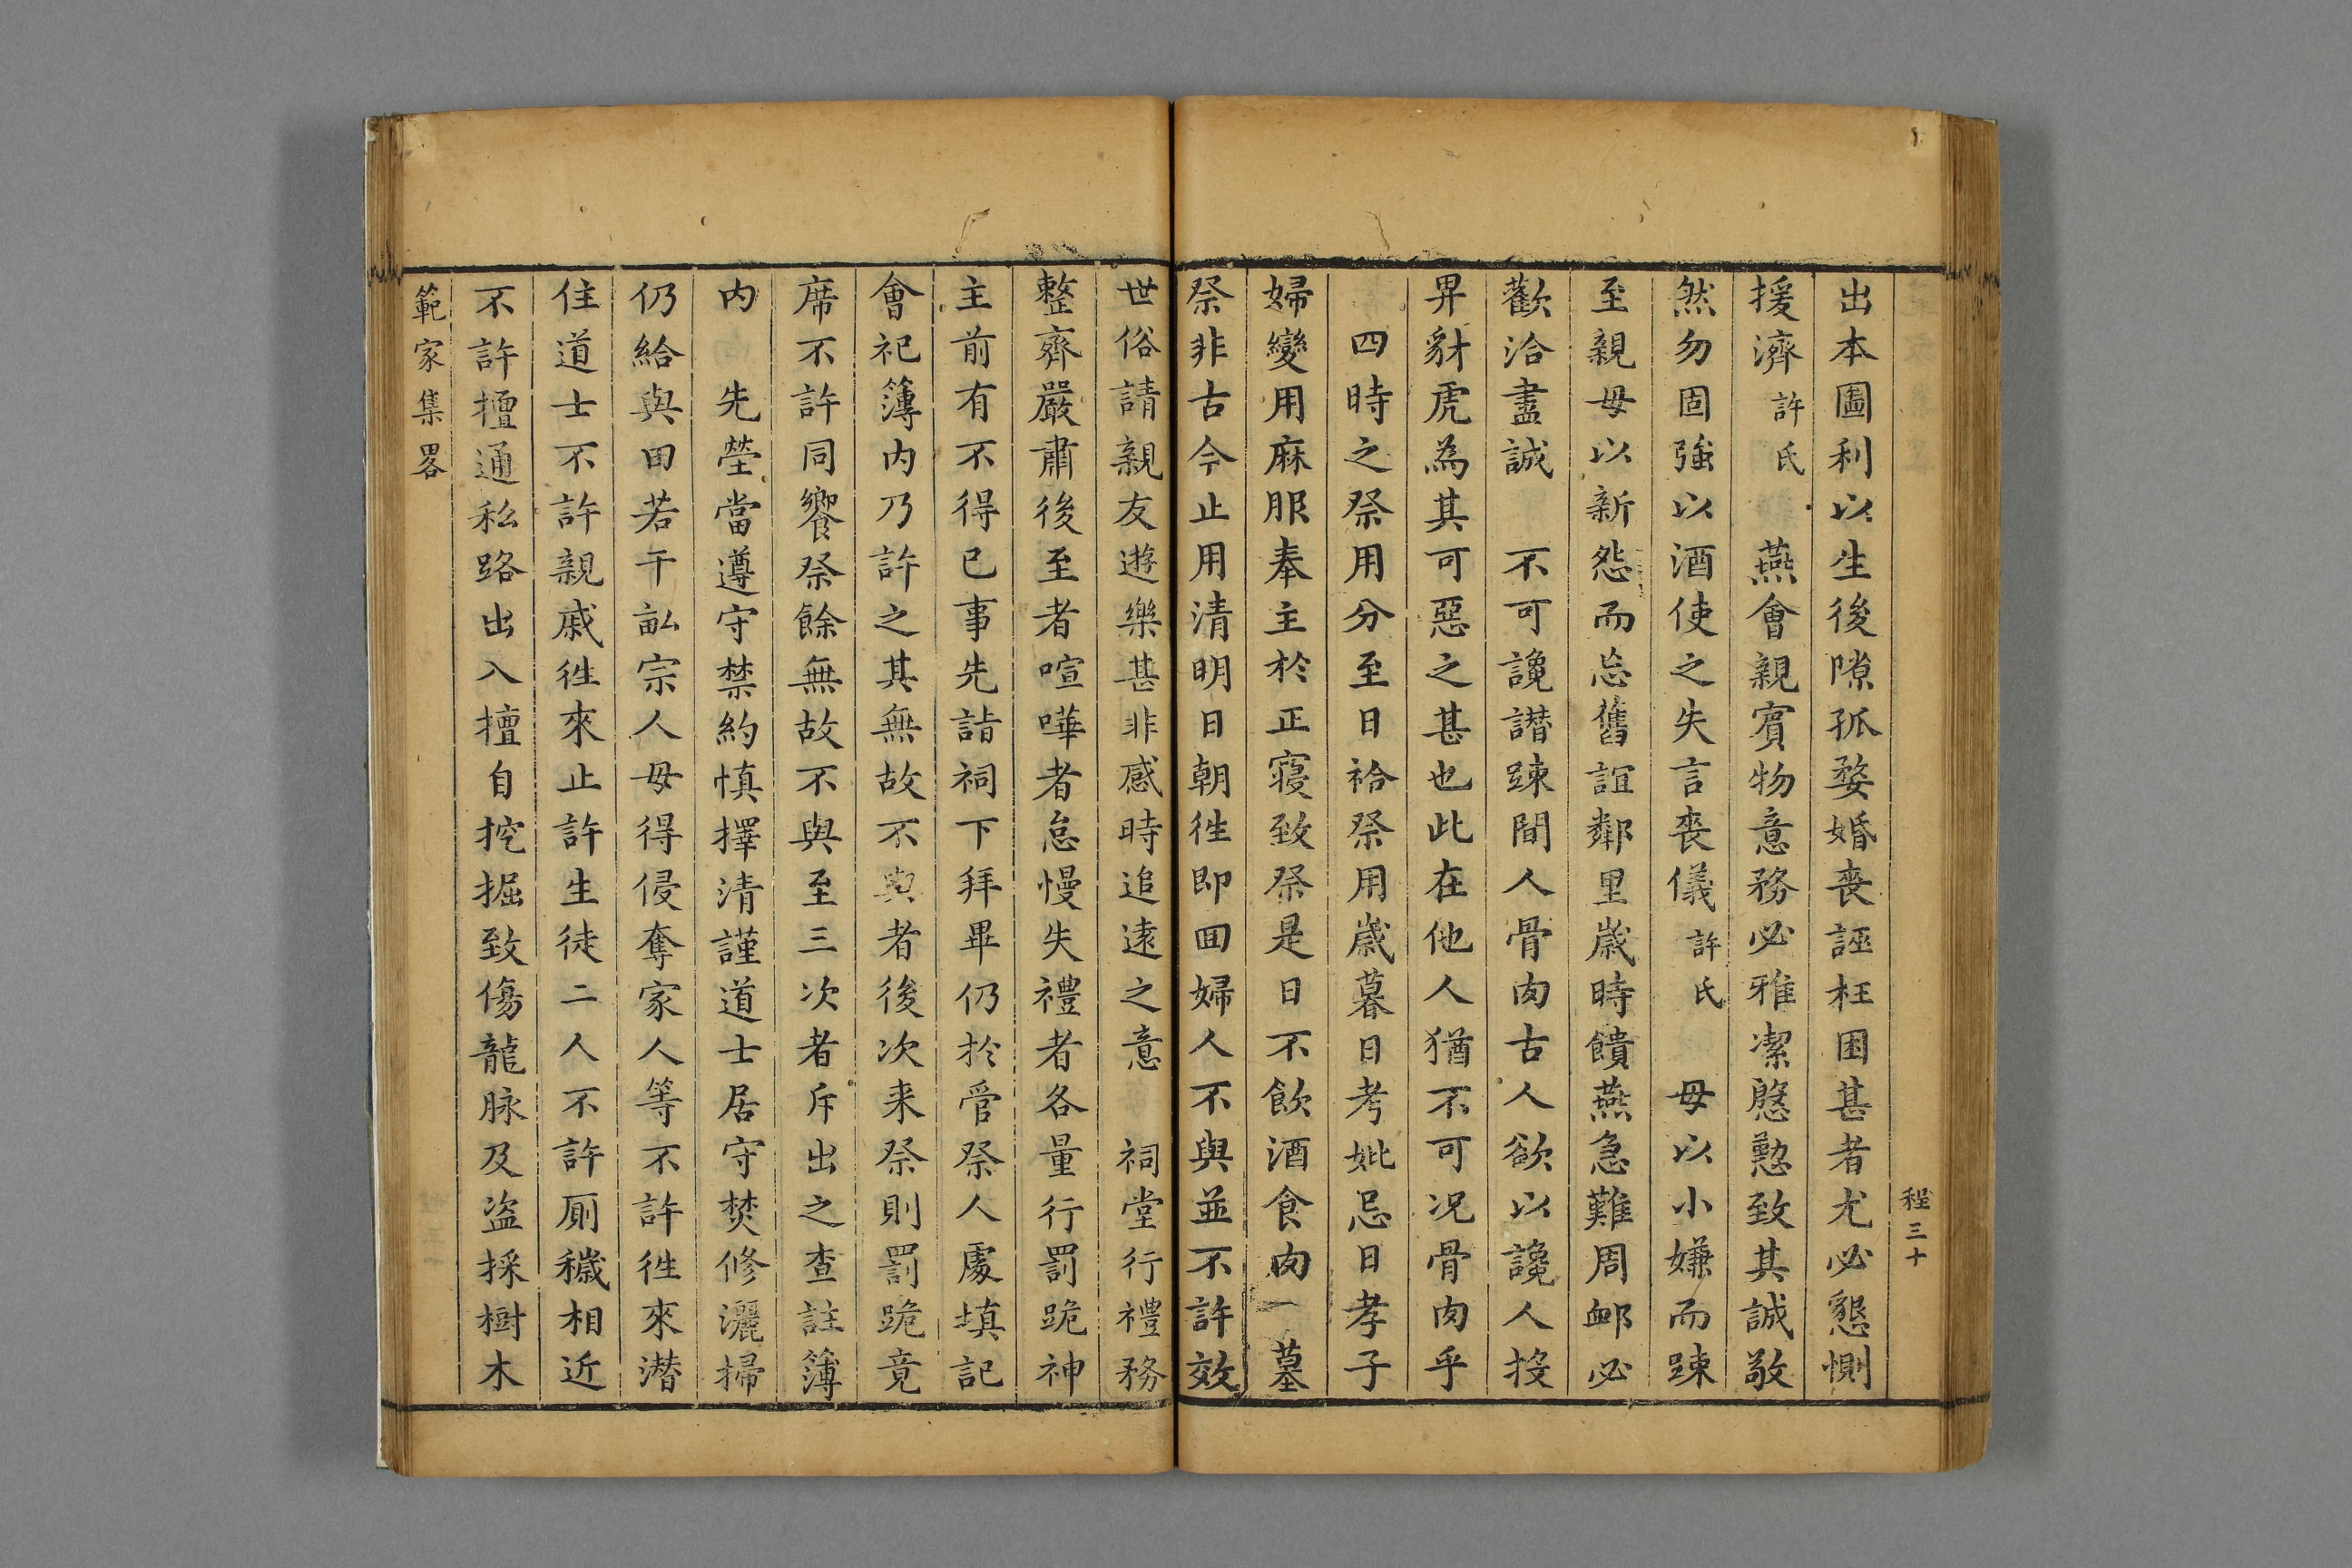 程三十
出本圖利以生後隙孤婺婚喪誣枉困甚者尤必懇惻
援濟許氏　燕會親賓物意務必雅潔慇懃致其誠敬
然勿固強以酒使之失言喪儀許氏　毋以小嫌而踈
至親毋以新怨而忘舊誼鄰里歲時饋燕急難周衈必
歡洽盡誠　不可讒譖踈間人骨肉古人欲以讒人投
畀豺虎為其可惡之甚也此在他人猶不可况骨肉乎
　四時之祭用分至日祫祭用歲暮日考妣忌日孝子
婦變用麻服奉主於正寢致祭是日不飲酒食肉　墓
祭非古今止用清明日朝徃即囬婦人不與並不許效
世俗請親友遊樂甚非感時追遠之意　祠堂行禮務
整齊嚴肅後至者喧嘩者怠慢失禮者各量行罰跪神
主前有不得已事先詣祠下拜畢仍於管祭人處填記
會祀簿内乃許之其無故不與者後次来祭則罰跪竟
席不許同饗祭餘無故不與至三次者斥出之查註簿
内　先塋當遵守禁約慎擇清謹道士居守焚修灑掃
仍給與田若干畆宗人毋得侵奪家人等不許徃來潜
住道士不許親戚徃來止許生徒二人不許厠穢相近
不許擅通私路出入擅自挖掘致傷龍脉及盗採樹木
範家集畧